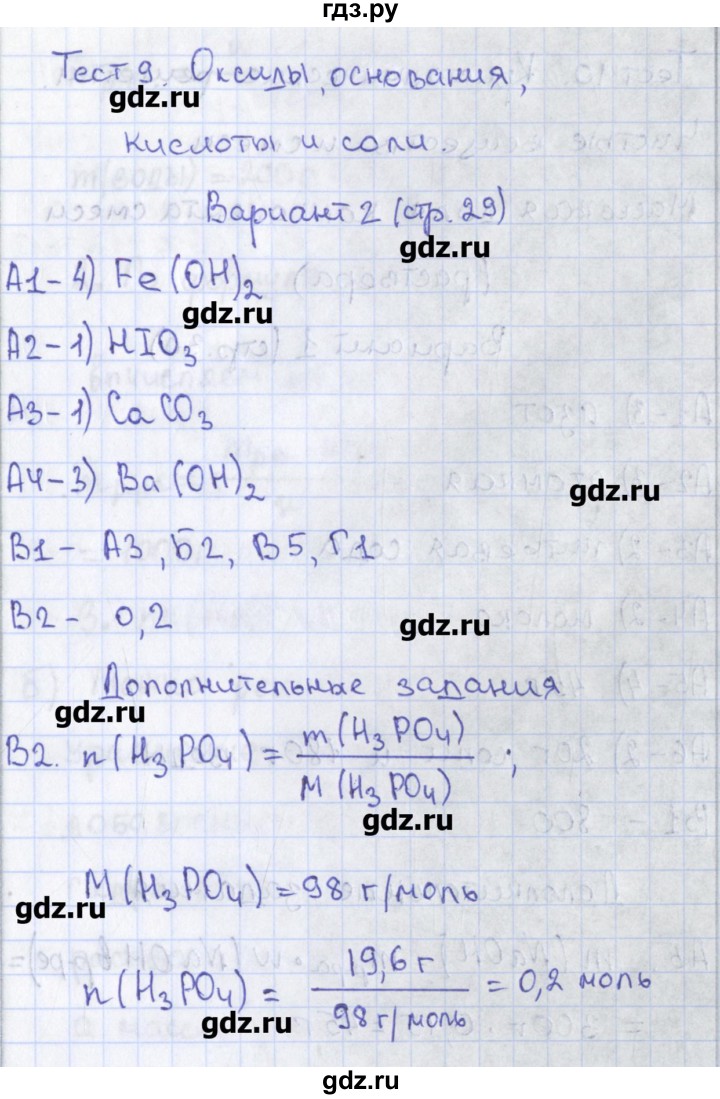 гдз.ру
Тест 9. Оксиды, основания,
gdz.ru
кислоты и соли.
Вариант 2 (стр. 29)
gdz.ru
А1-4) Fe(OH)₂
gdz.ru
А2-1) HIO₃
А3-1) CaCO₃
А4-3) Ba(OH)₂
gdz.ru
В1 - А3, Б2, В5, Г1
В2 - 0,2
gdz.ru
Дополнительные задания
gdz.ru
В2. n(H₃PO₄) = m(H₃PO₄) / M(H₃PO₄) ;
gdz.ru
M(H₃PO₄) = 98 г/моль
gdz.ru
n(H₃PO₄) = 19,6 г / 98 г/моль = 0,2 моль
gdz.ru
gdz.ru